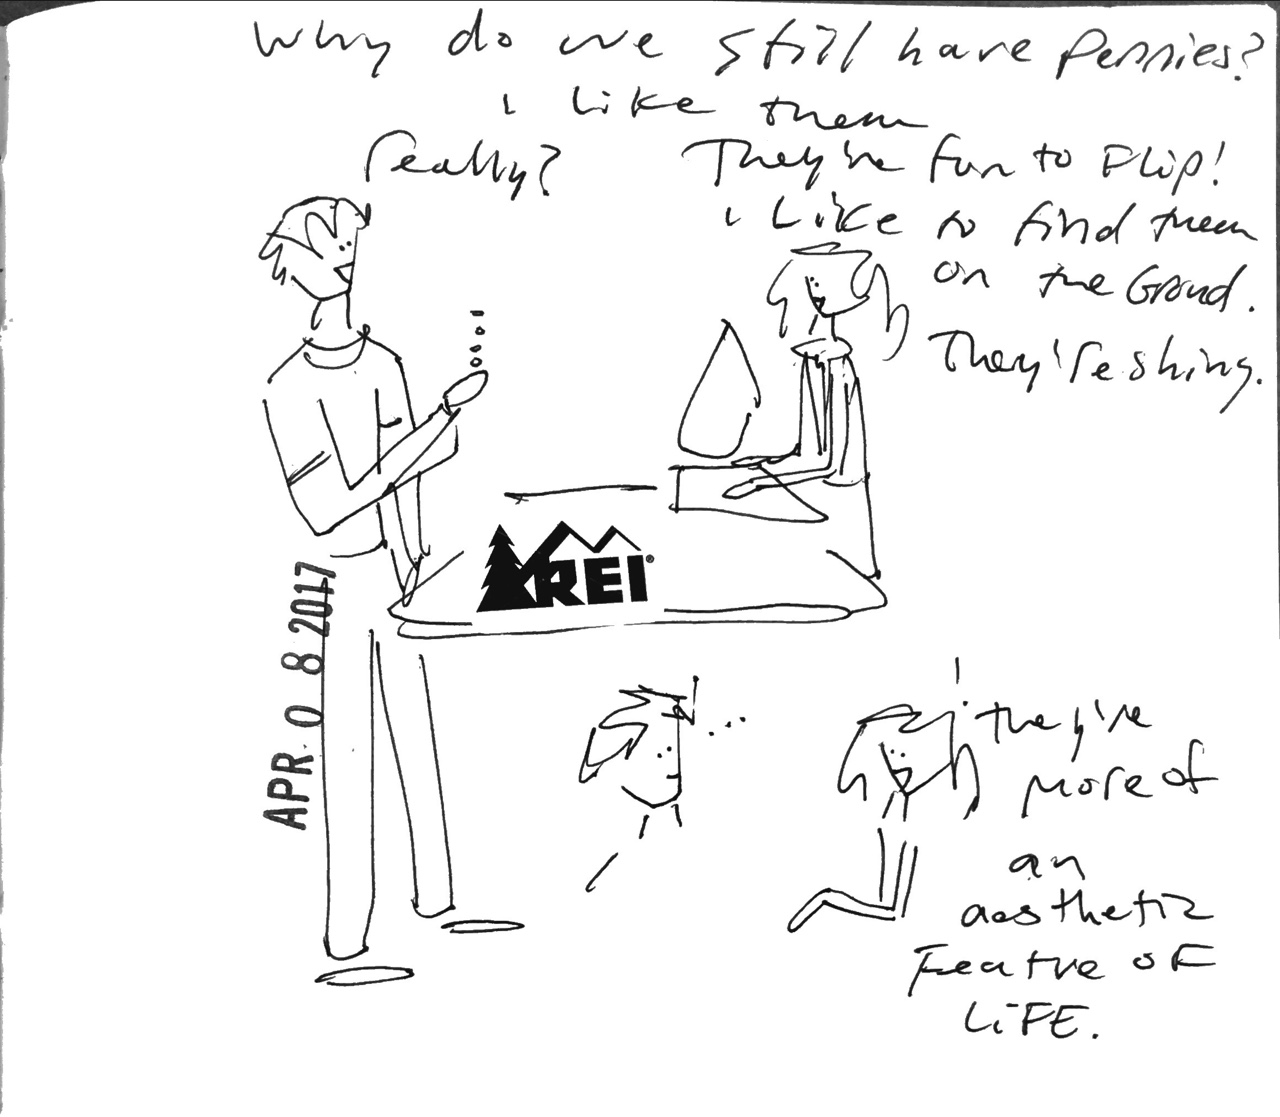 Why do we still have Pennies?
i Like them
Really?
They're fun to Flip!
i Like to find them
on the Ground.
They're shiny.
REI
APR 0 8 2017
! they're
more of
an
aesthetic
Feature OF
LiFE.